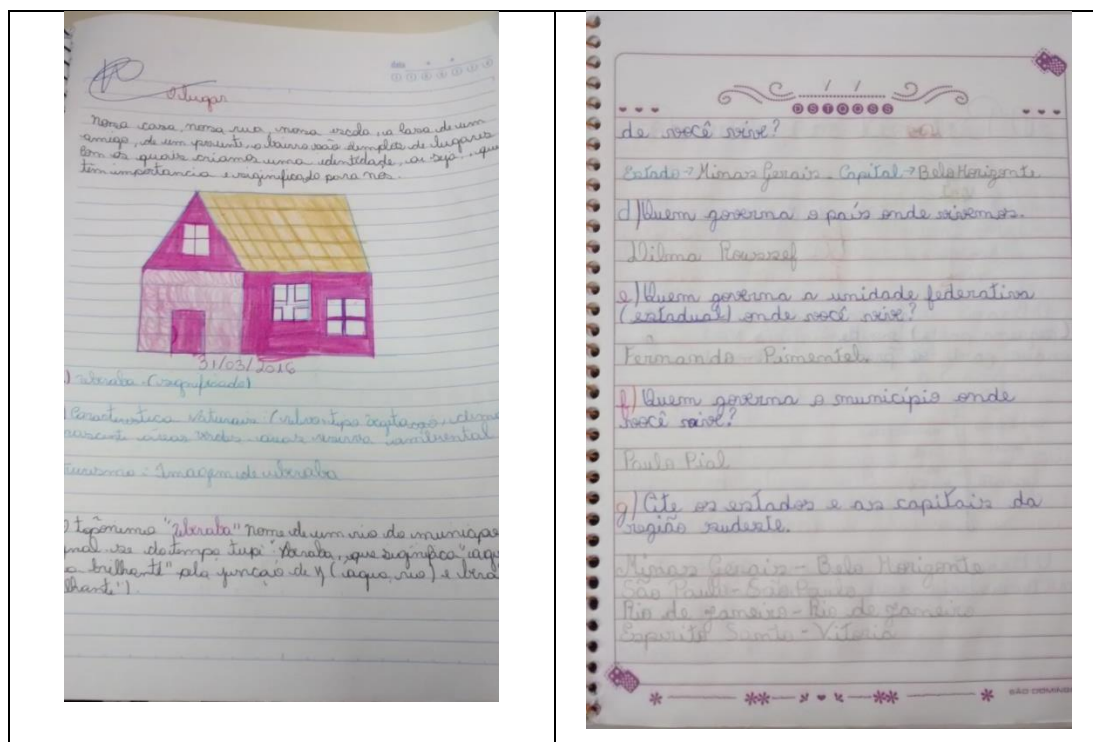 data
O lugar
Nossa casa, nossa rua, nossa escola, a casa de um
amigo, de um parente, o bairro são exemplos de lugares
com os quais criamos uma identidade, ou seja, que
tem importancia e significado para nós.
31/03/2016
Uberaba (significado)
Caracteristica Naturais (relevo, tipo vegetação, clima
nascente áreas verdes reserva ambiental
Turismo: Imagem de uberaba
topônimo "Uberaba" nome de um rio do municipio
se do tempo tupi que significa "água
brilhante" pela junção de y (água, rio) e
lhante").
D S T Q Q S S
de você vive?
Estado → Minas Gerais. Capital → Belo Horizonte
d) Quem governa o país onde vivemos.
Dilma Roussef
e) Quem governa a unidade federativa
(estadual) onde você vive?
Fernando Pimentel.
f) Quem governa o município onde
você vive?
Paulo Pial
g) Cite os estados e as capitais da
região sudeste.
Minas Gerais - Belo Horizonte
São Paulo - São Paulo
Rio de Janeiro - Rio de Janeiro
Espirito Santo - Vitoria
SÃO DOMING